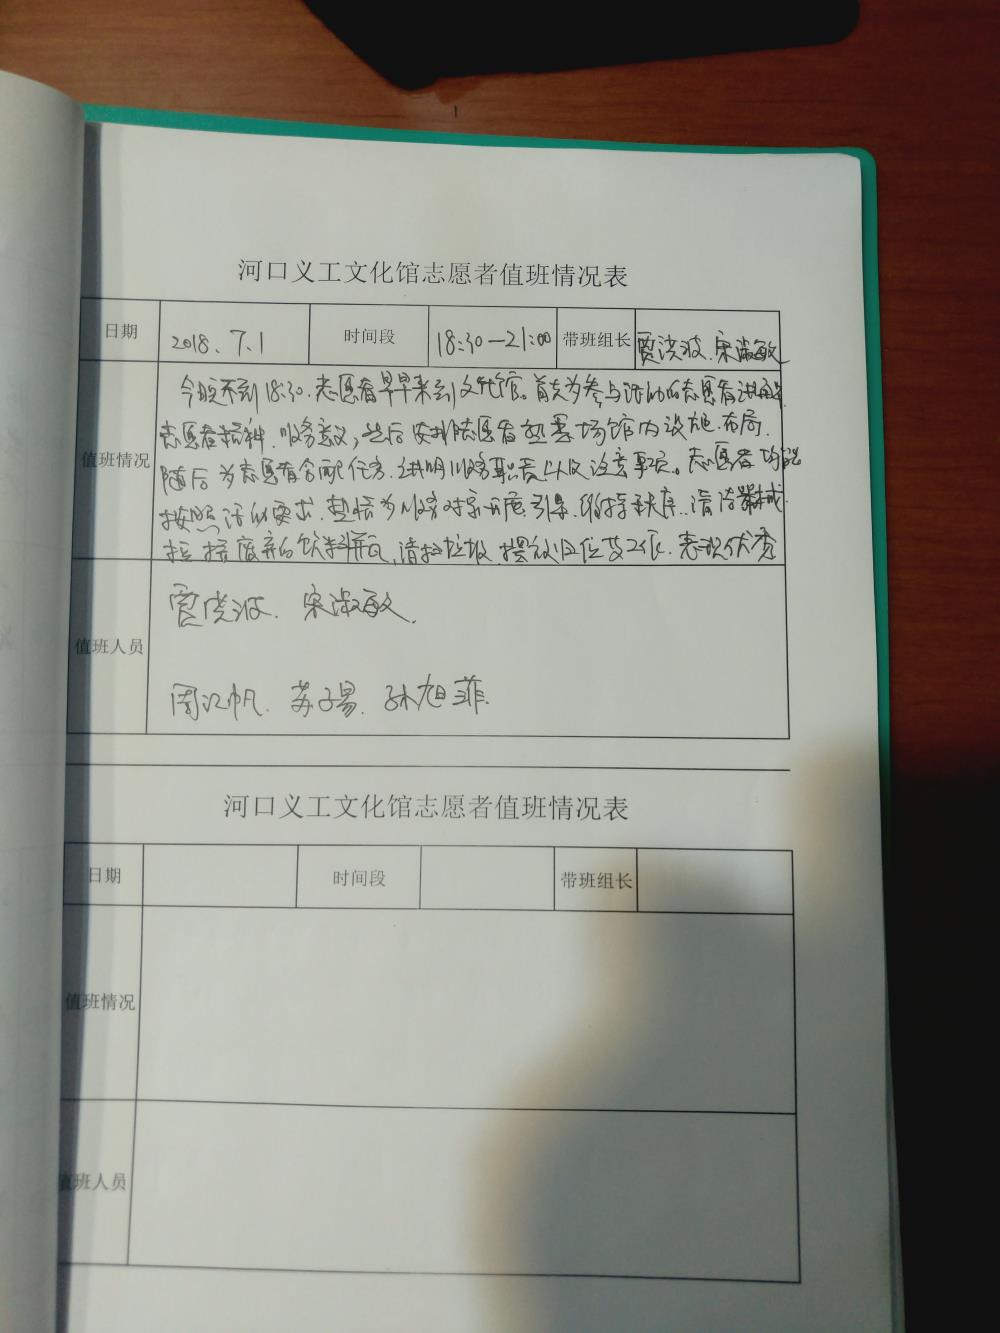 河口义工文化馆志愿者值班情况表
日期 2018.7.1 时间段 18:30—21:00 带班组长 贾洪波、宋淑敏
值班情况
今晚不到18:30.志愿者早早来到文化馆。首先为参与活动的志愿者讲解
志愿者精神、服务意义,然后安排志愿者熟悉场馆内设施、布局.
随后为志愿者分配任务.讲明服务职责以及注意事项。志愿者均能
按照活动要求.热情为服务对象引导、维持秩序、清洁器械
捡拾废弃的饮料瓶,清扫垃圾.摆放归位等工作.表现优秀
值班人员
贾洪波. 宋淑敏.
周江帆. 苏子易. 孙旭菲.
河口义工文化馆志愿者值班情况表
日期 时间段 带班组长
值班情况
值班人员